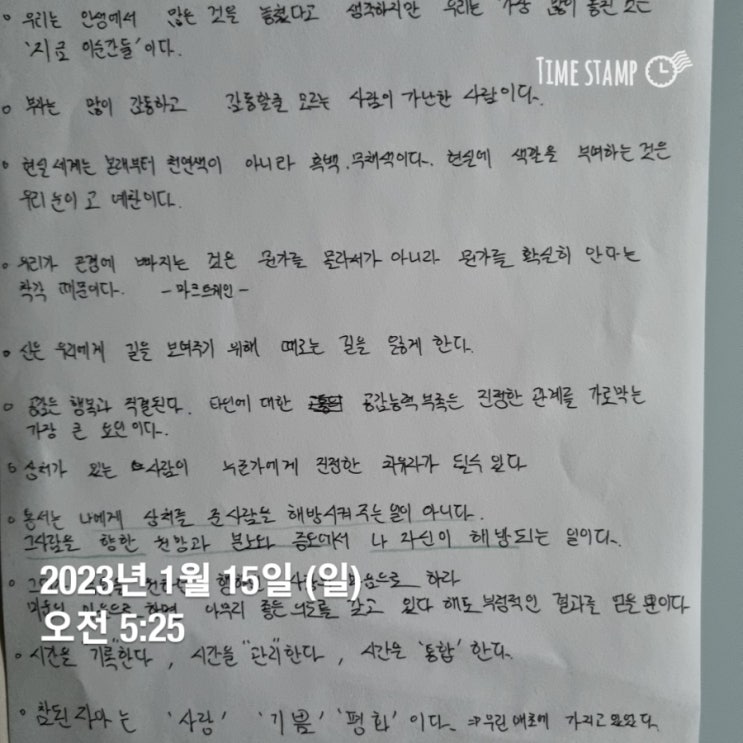 우리는 인생에서 많은 것을 놓쳤다고 생각하지만 우리는 가장 많이 놓친 것은
'지금 이순간들'이다.
TIME STAMP
부자는 많이 감동하고 감동할줄 모르는 사람이 가난한 사람이다.
현실세계는 본래부터 천연색이 아니라 흑백.무채색이다. 현실에 색깔을 부여하는 것은
우리 눈이고 뇌란이다.
우리가 곤경에 빠지는 것은 뭔가를 몰라서가 아니라 뭔가를 확실히 안다는
착각 때문이다. -마크트웨인-
신은 우리에게 길을 보여주기 위해 때로는 길을 잃게 한다.
공감은 행복과 직결된다. 타인에 대한 공감능력부족은 진정한 관계를 가로막는
가장 큰 요인이다.
상처가 있는 사람이 누군가에게 진정한 치유자가 될수 있다
용서는 나에게 상처를 준사람을 해방시켜주는일이 아니다.
그사람을 향한 원망과 분노와 증오에서 나 자신이 해방되는 일이다.
마음으로 하라
마음으로 하면 아무리 좋은 의도를 갖고 있다 해도 부정적인 결과를 얻을 뿐이다
2023년 1월 15일 (일)
오전 5:25
시간을 "기록"한다, 시간을 "관리"한다, 시간은 '통합'한다.
참된 자아는 '사랑' '기쁨' '평화'이다. ⇒우린 애초에 가지고있었다.